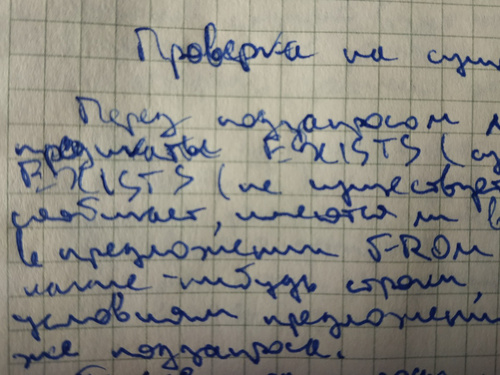 Проверка на сущ
Перед подзапросом м
предикаты EXISTS (су
EXISTS (не существует
сообщает, имеются ли в
в предложении FROM
какие-нибудь строки,
условиям предложени
же подзапроса.